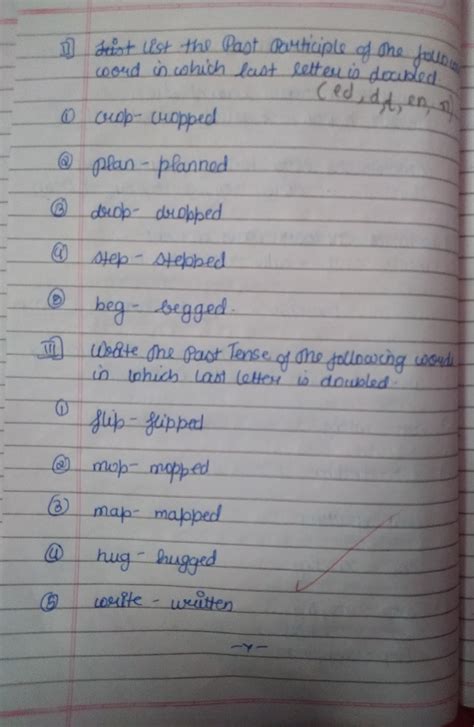 II] List the Past Participle of the follow
word in which last letter is doubled
(ed, d, t, en, n)
① crop - cropped
② plan - planned
③ drop - dropped
④ step - stepped
⑤ beg - begged.
III] Write the Past Tense of the following words
in which last letter is doubled.
① flip - flipped
② mop - mopped
③ map - mapped
④ hug - hugged
⑤ write - written